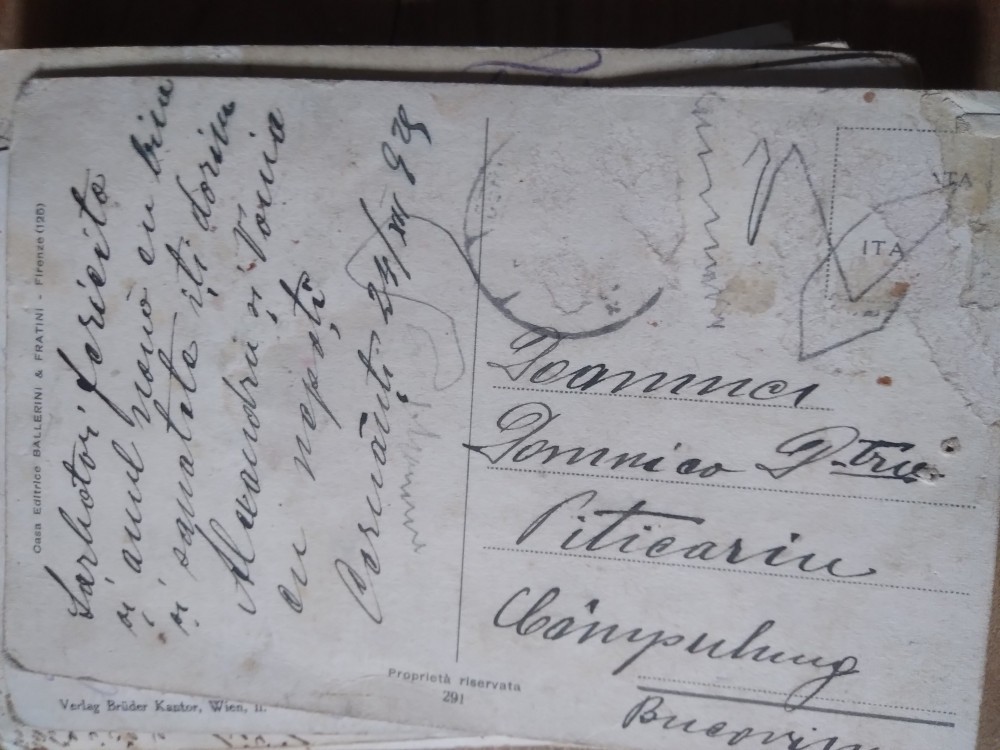 Casa Editrice BALLERINI & FRATINI - Firenze (125)
Sărbători fericite
și anul nou cu bine
și sănătate îți dorim
Alexandru și Vonia
cu nepoți
24/XII 93
Doamnei
Domnica D-tru
Piticariu
Câmpulung
Bucovina
ITA
ITA
Proprietà riservata
291
Verlag Brüder Kantor, Wien, II.